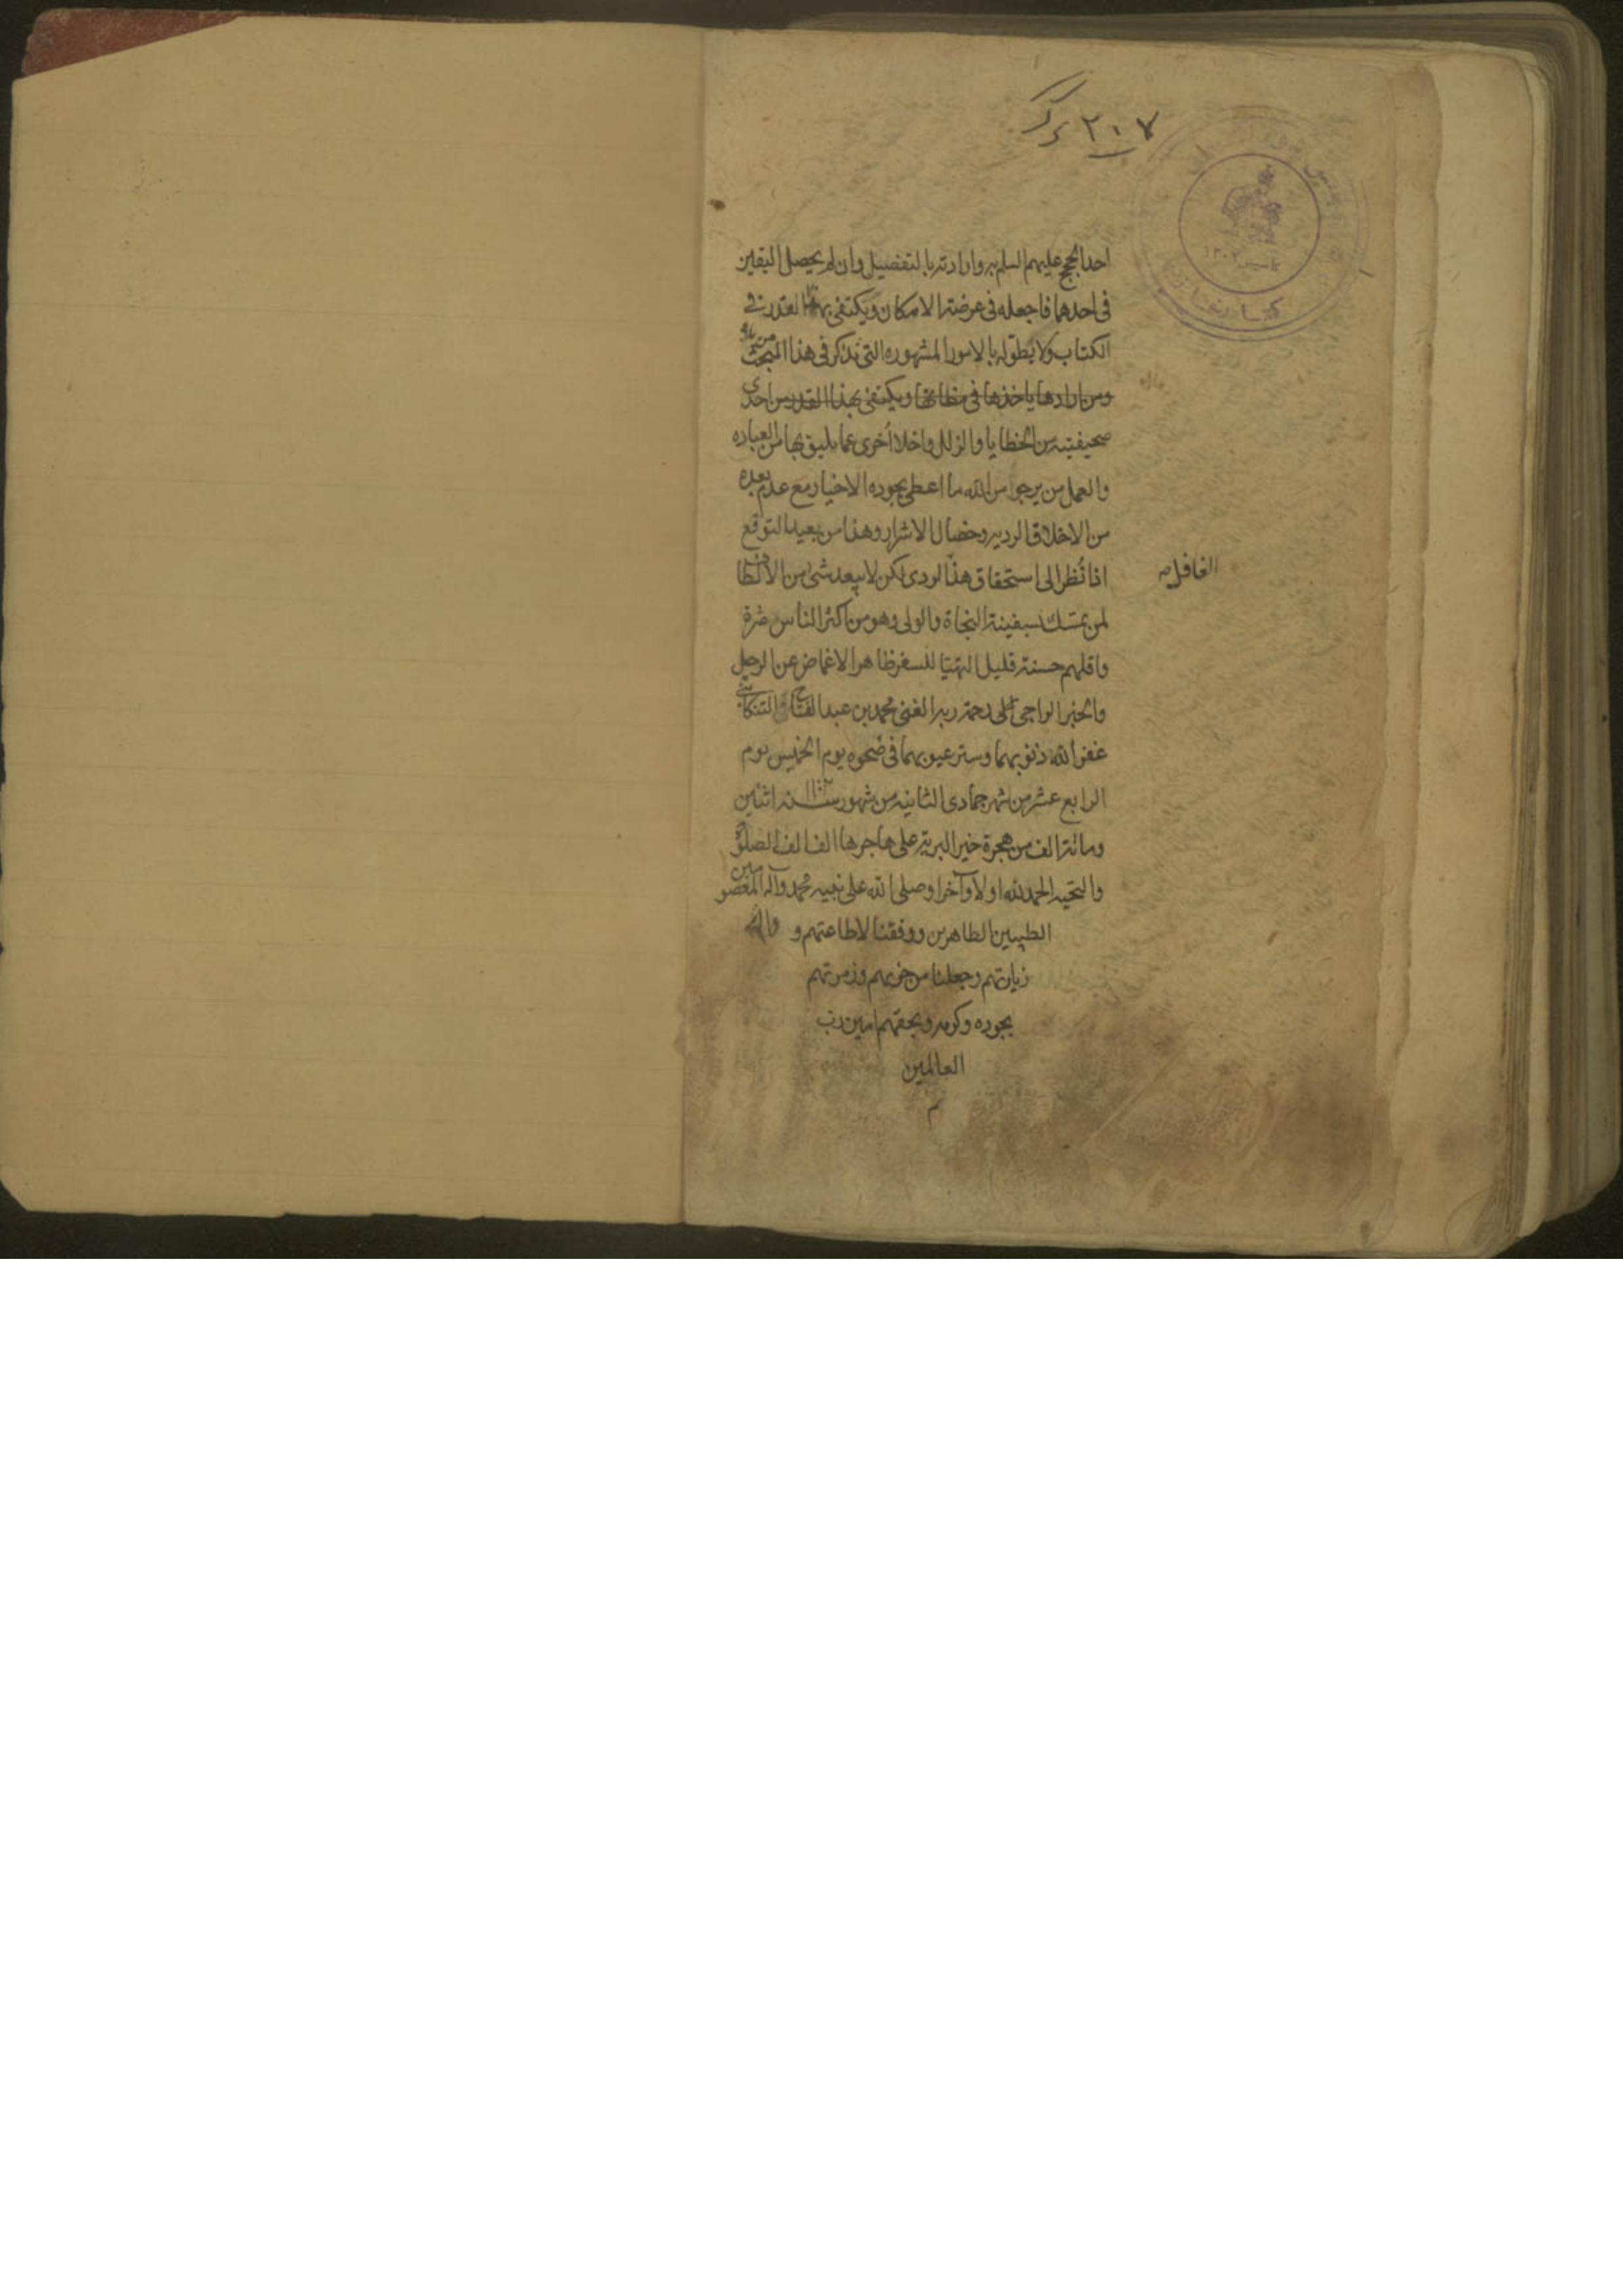 ٢٠٧
احد الحجج عليهم السلم به وارادته بالتفصيل وان لم يحصل اليقين
فى احدهما فاجعله فى عرضة الامكان ويكتفى بهذا القدر فى
الكتاب ولا يطوله بالامور المشهوره التى تذكر فى هذا المبحث
ومن ارادها ياخذها فى مظانها ويكتفى بهذا القدر من احدى
صحيفتيه من الخطايا والزلل واخلا اخرى عما يليق بها من العباره
والعمل من يرجوا من الله ما اعطى بجوده الاخيار مع عدم بعده
من الاخلاق الرديه وخصال الاشرار وهذا من بعيد التوقع
اذا نظر الى استحقاق هذا لردى لكن لا يبعد شئ من الالطاف
لمن تمسك بسفينة النجاة والولى وهو من اكثر الناس
الغافل
واقلهم حسنة قليل التهيّا للسفر ظاهر الاغماض عن الرحيل
الراجى الى رحمة ربه الغنى محمد بن عبد الفتاح التنكابنى
غفر الله ذنوبهما وستر عيوبهما فى ضحوه يوم الخميس يوم
الرابع عشر من شهر جمادى الثانيه من شهور سنه اثنين
ومائة الف من هجرة خير البرية على هاجرها الف الف الصلوة
والتحيه الحمد لله اولا وآخرا وصلى الله على نبيه محمد وآله المعصومين
الطيبين الطاهرين ووفقنا لاطاعتهم و
زيارتهم وجعلنا من حزبهم وزمرتهم
بجوده وكرمه وبحقهم امين رب
العالمين
م